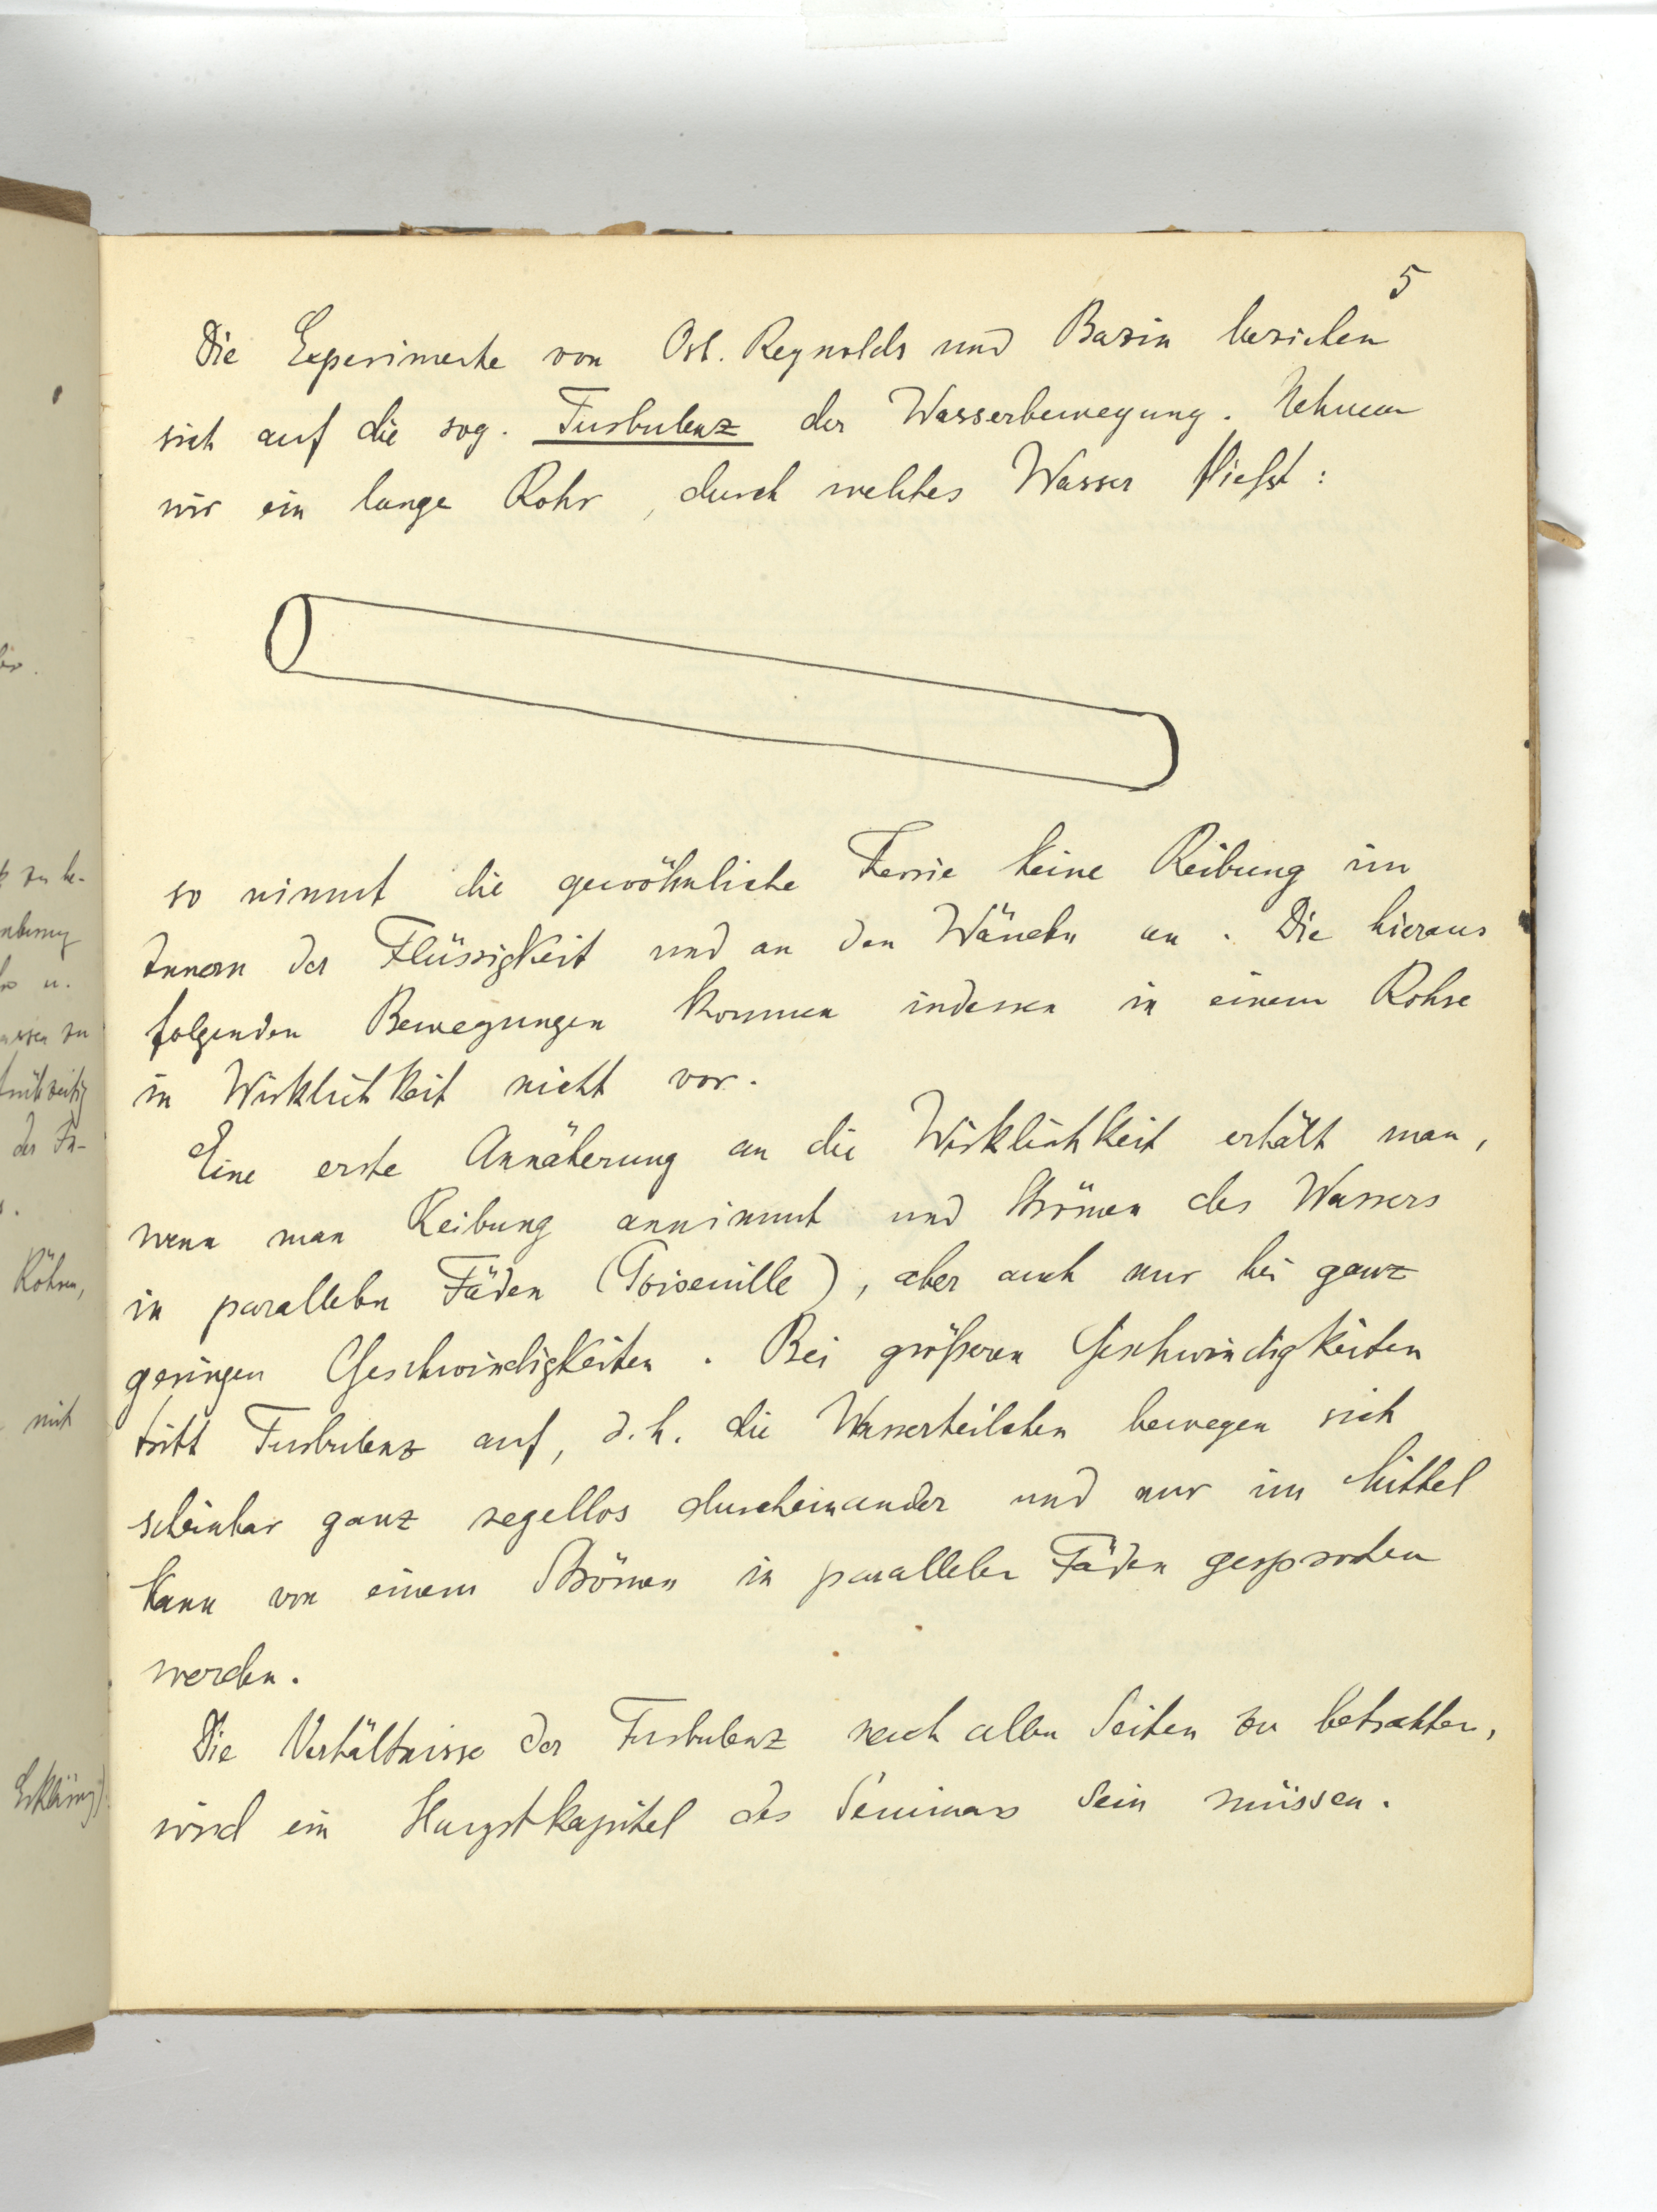 5
Die Experimente von Osb. Reynolds und Bazin beziehen
sich auf die sog. Turbulenz der Wasserbewegung. Nehmen
wir ein lange Rohr, durch welches Wasser fließt:
so nimmt die gewöhnliche Teorie keine Reibung im
Innern der Flüssigkeit und an den Wänden an. Die hieraus
folgenden Bewegungen kommen indessen in einem Rohre
in Wirklichkeit nicht vor.
Eine erste Annäherung an die Wirklichkeit erhält man,
wenn man Reibung annimmt und Strömen des Wassers
in parallelen Fäden (Poiseuille), aber auch nur bei ganz
geringen Geschwindigkeiten. Bei größeren Geschwindigkeiten
tritt Turbulenz auf, d.h. die Wasserteilchen bewegen sich
scheinbar ganz regellos durcheinander und nur im Mittel
kann von einem Strömen in parallelen Fäden gesprochen
werden.
Die Verhältnisse der Turbulenz nach allen Seiten zu betrachten,
wird ein Hauptkapitel des Seminars sein müssen.
zu be-
u.
zu
Röhren,
mit